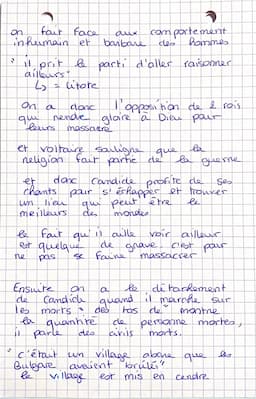 on fait face aux comportement
inhumain et barbare des hommes
" il prit le parti d'aller raisonner
ailleurs"
↳ = litote
On a donc l'opposition de 2 rois
qui rende gloire à Dieu pour
leurs massacre
et voltaire souligne que la
religion fait partie de la guerre
et donc Candide profite de ses
chants pour s'échapper et trouver
un lieu qui peut être le
meilleurs des mondes
le fait qu'il aille voir ailleur
est quelque de grave. c'est pour
ne pas se faire massacrer
Ensuite on a le détachement
de Candide quand il marche sur
les morts " des tas de" montre
la quantité de personne mortes,
il parle des civils morts.
" c'était un village abare que les
Bulgare avaient brûlés"
le village est mis en cendre